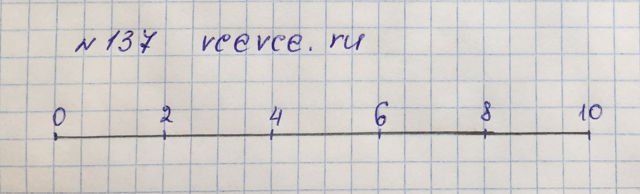 №137 vcevce.ru
0 2 4 6 8 10